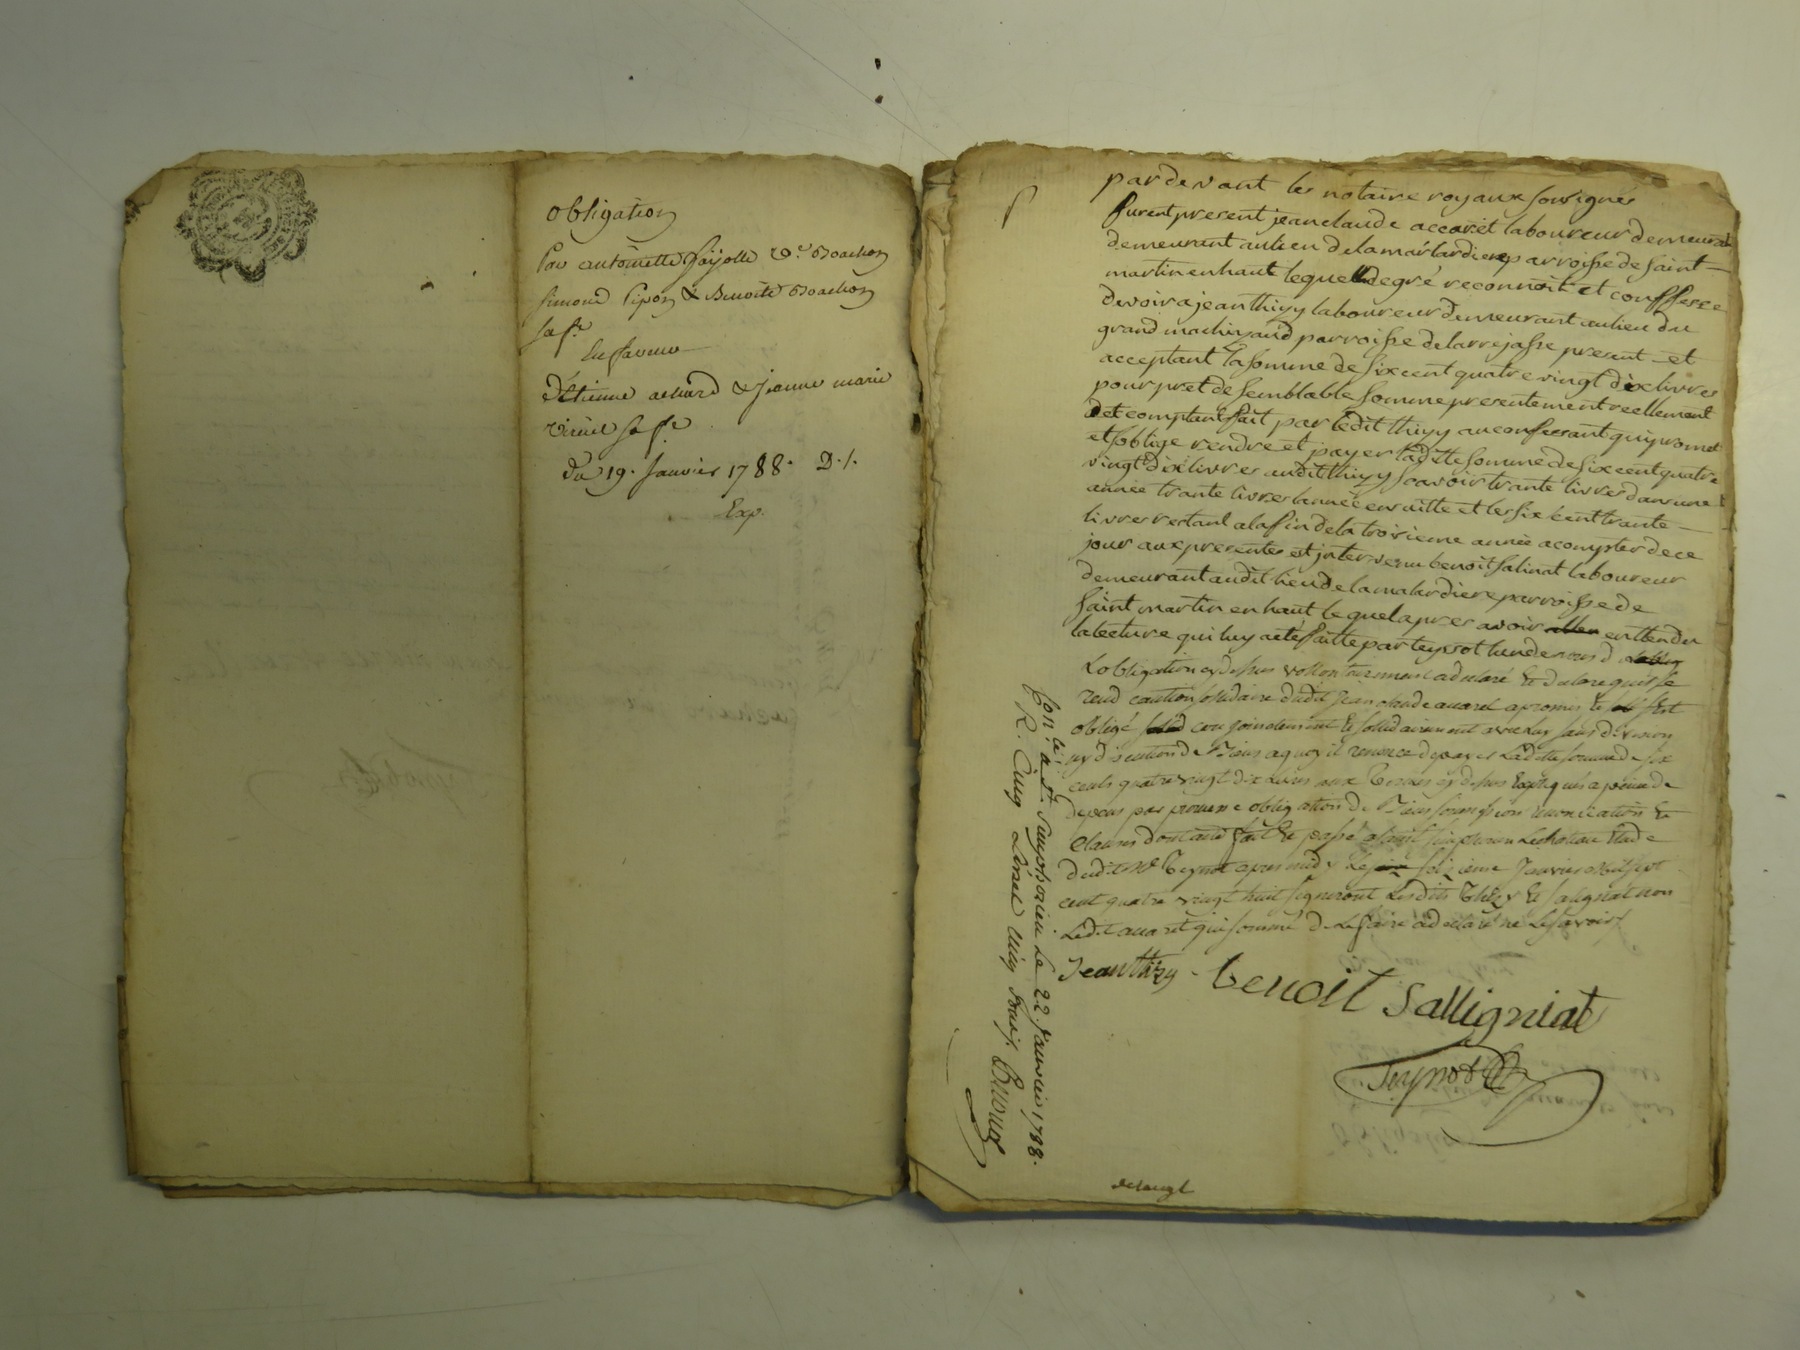 obligation
Par antoinette fayolle v.e Boachon
simond Pipon & Benoite Boachon
sa f.e
En faveur
D'Etienne
& jeanne marie
sa f.e
Du 19. Janvier 1788. D.t.
Exp.
pardevant les notaire royaux sousignés
furent present jean claude accaret laboureur demeurant
demeurant au lieu de la martardiere parroisse de saint
martin en haut lequel de gré reconnoit et confesse
devoir a jean thizy laboureur demeurant au lieu du
grand parroisse de larrejasse present et
acceptant la somme de six cent quatre vingt dix livres
pour pret de semblable somme presentement reellement
et comptant fait par ledit thizy au confessant qui promet
et soblige rendre et payer ladite somme de six cent quatre
vingt dix livres audit thizy scavoir trante livres dans une
année trante livres lannée ensuitte et les six cent trante
livres restant a la fin de la troisieme année a compter de ce
jour aux presentes est intervenu benoit salinat laboureur
demeurant audit lieu de la malardiere parroisse de
saint martin en haut lequel apres avoir enttendu
la lecture qui luy a eté faitte par teynot lun de nous d
Lobligation cy dessus vollontairement a declaré & declare quil se
rend caution solidaire dudit jean claude accaret a promis & sest
obligé conjointement & sollidairement avec luy sans division
ny discution de Biens a quoy il renonce de payer Laditte somme de six
cents quatre vingt dix Livres aux Termes cy dessus Expliqués a peine de
depens par obligation de Biens soumission renonciation &
clauses dont acte fait & passé a saint simphorien Lechateau Etude
dudit M.e Teynot apres midy Le seizieme Janvier mil sept
cent quatre vingt huit signeront Lesdits Thizy & salignat non
Ledit accaret qui sommé de Le faire a declaré ne Le savoir
Jean thizy
benoit Salligniat
Teynot
Con.lé a S.t Simphorien Le 22. Janvier 1788.
R. Cinq Livres Cinq sous